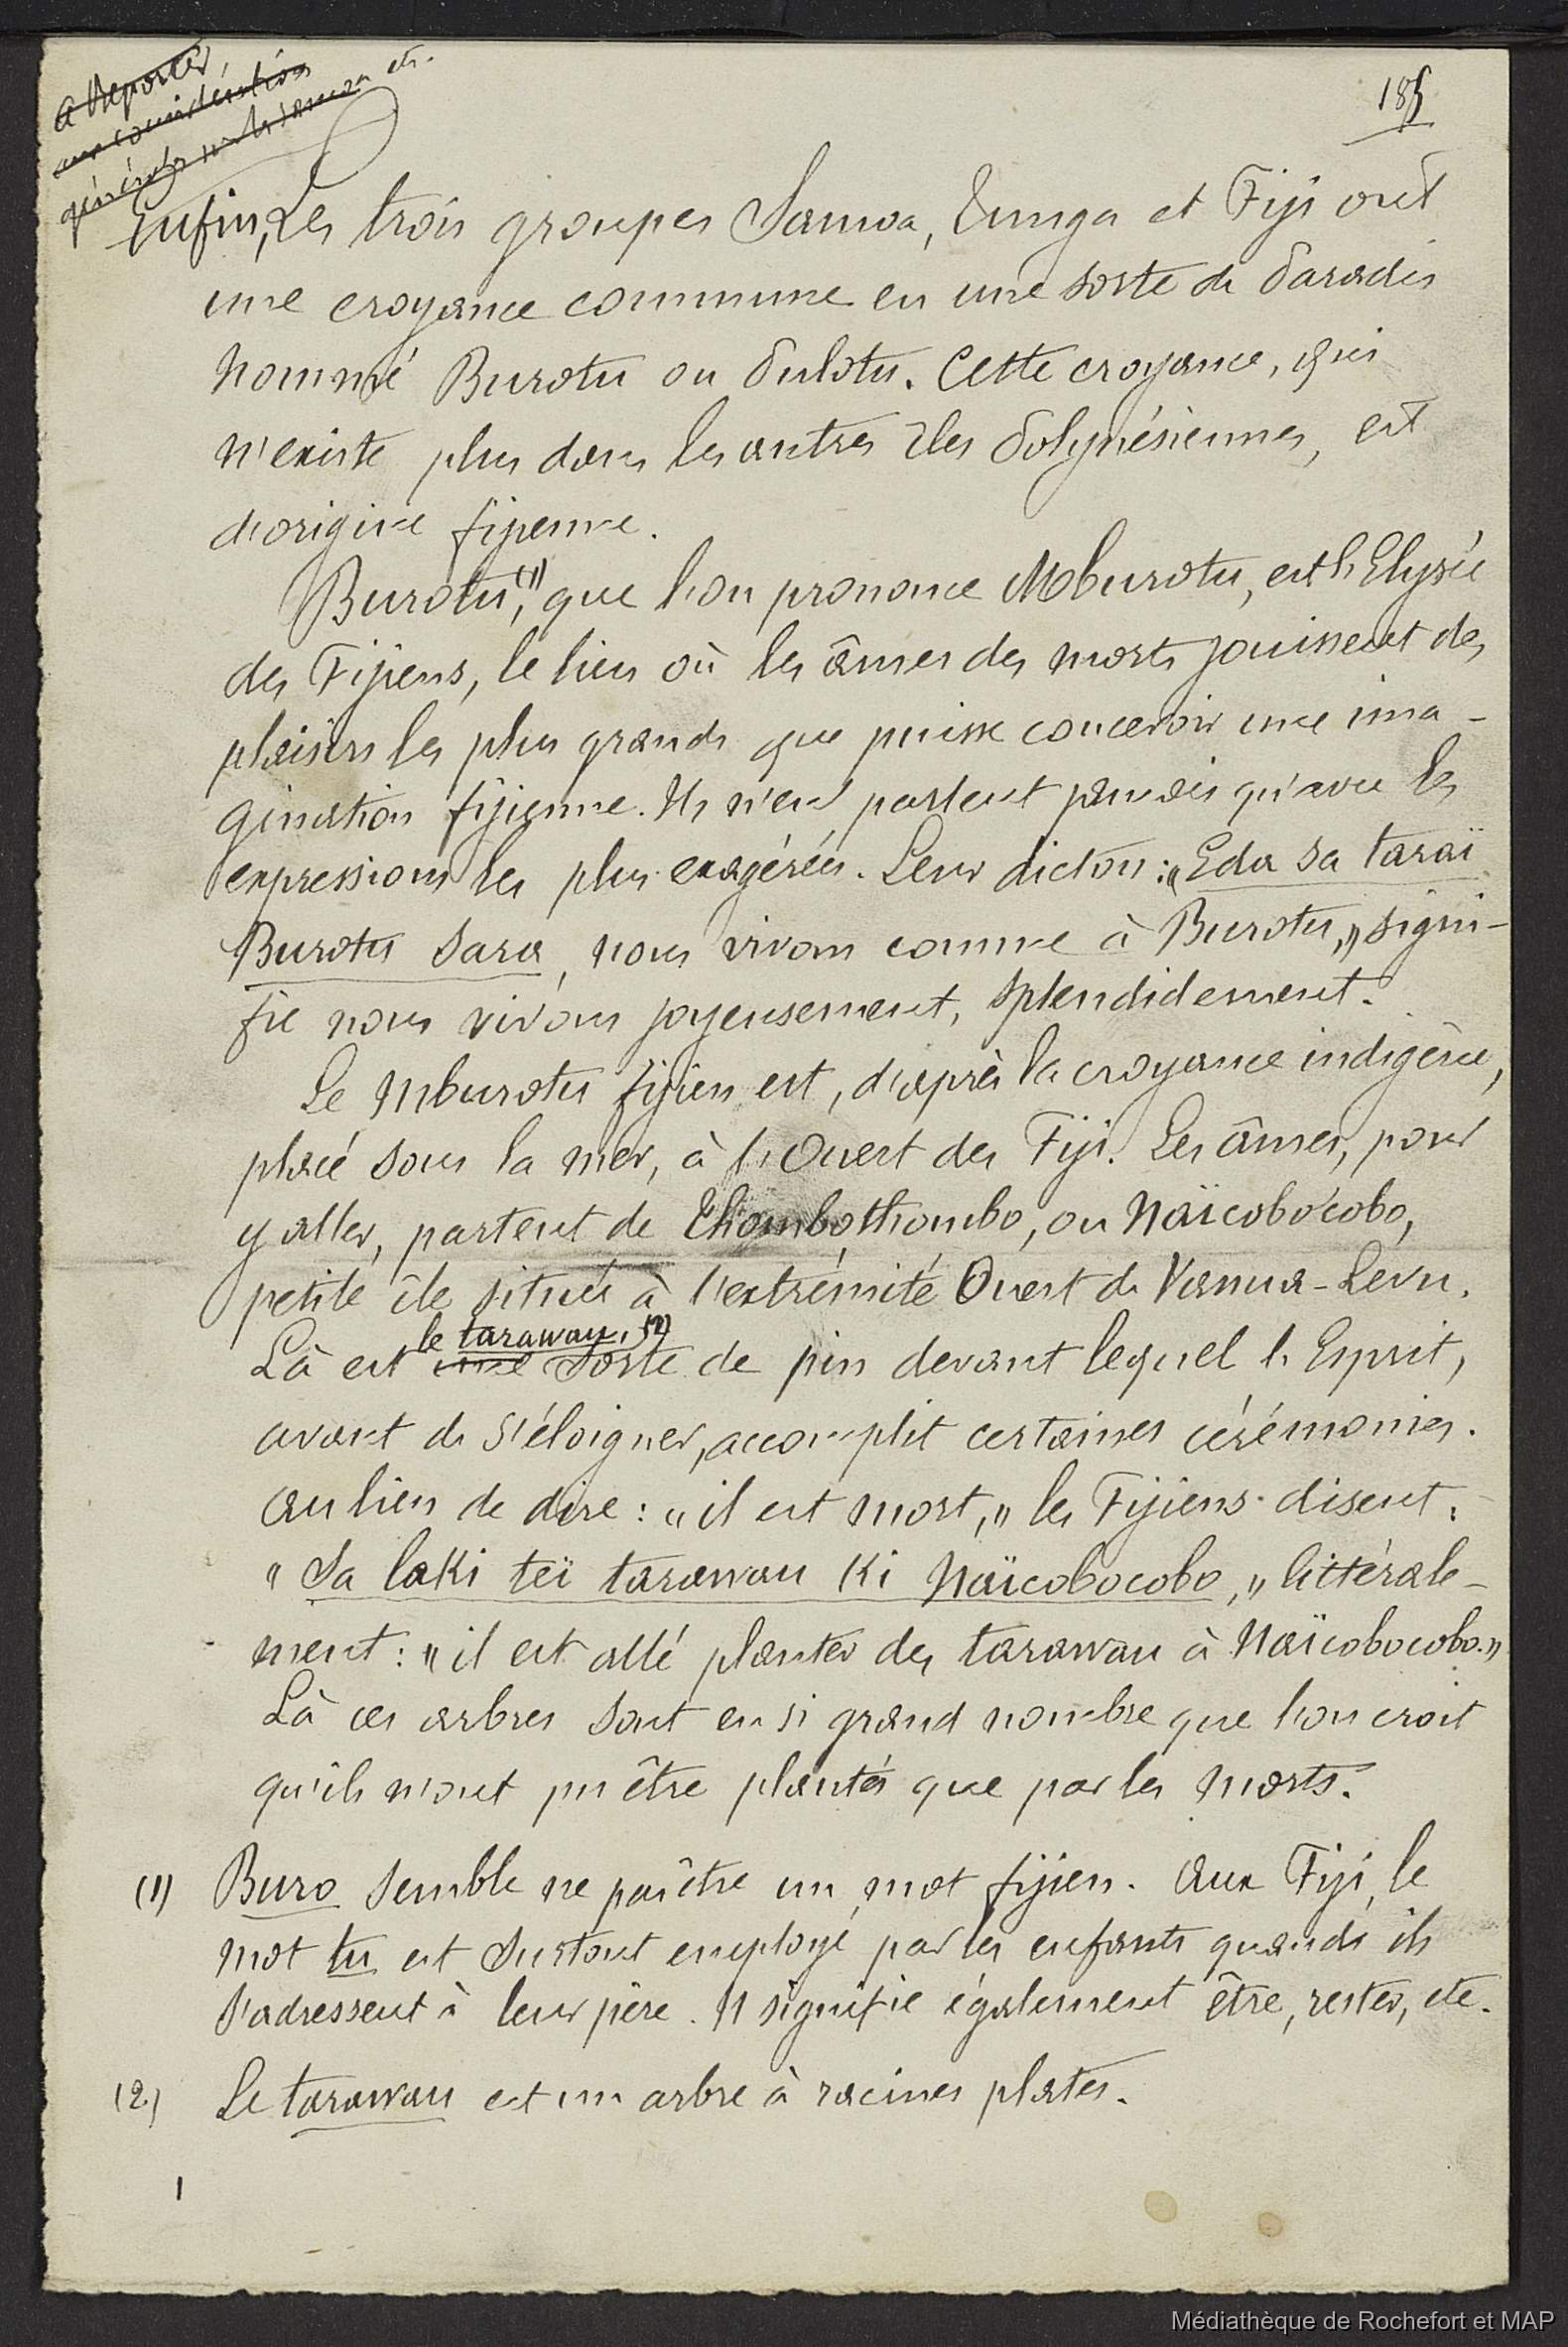 a Reporter,
aux considérations
générales sur les Samoa etc.
185
Enfin, Les trois groupes Samoa, Tunga et Fiji ont
une croyance commune en une sorte de Paradis
nommé Burotu ou Pulotu. Cette croyance, qui
n'existe plus dans les autres îles Polynésiennes, est
d'origine fijienne.
Burotu,(1) que l'on prononce Mburotu, est l'Elysée
des Fijiens, le lieu où les âmes des morts jouissent des
plaisirs les plus grands que puisse concevoir une ima-
gination fijienne. Ils n'en parlent jamais qu'avec les
expressions les plus exagérées. Leur dicton : "Eda sa taraï
Burotu sara, nous vivons comme à Burotu," signi-
fie nous vivons joyeusement, splendidement.
Le Mburotu fijien est, d'après la croyance indigène,
placé sous la mer, à l'Ouest des Fiji. Les âmes, pour
y aller, partent de Thombothombo, ou Naïcobocobo,
petite île située à l'extrémité Ouest de Vanua-Levu.
le tarawau, (2)
Là est une sorte de pin devant lequel l'Esprit,
avant de s'éloigner, accomplit certaines cérémonies.
au lieu de dire : "il est mort," les Fijiens disent :
"Sa laki teï tarawau ki Naïcobocobo," littérale-
ment : "il est allé planter des tarawau à Naïcobocobo."
Là ces arbres sont en si grand nombre que l'on croit
qu'ils n'ont pu être plantés que par les morts.
(1) Buro semble ne pas être un mot fijien. Aux Fiji, le
mot tu est surtout employé par les enfants quand ils
s'adressent à leur père. Il signifie également être, rester, etc.
(2) Le tarawau est un arbre à racines plates.
1
Médiathèque de Rochefort et MAP